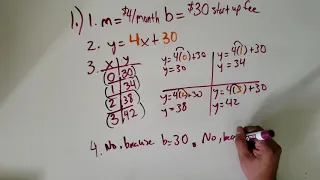 1.) 1. m= $4/month b= $30 start up fee
2. y=4x+30
3. x | y
0 | 30
1 | 34
2 | 38
3 | 42
y=4(0)+30
y=30
y=4(1)+30
y=34
y=4(2)+30
y=38
y=4(3)+30
y=42
4. No, because b=30. No, beca